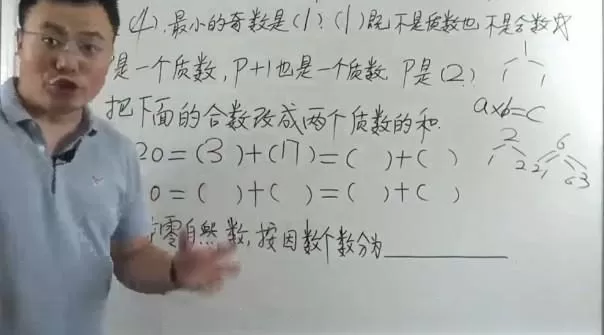 (4).最小的奇数是(1).(1)既不是质数也不是合数
是一个质数,P+1也是一个质数.P是(2)
把下面的合数改成两个质数的和.
20=(3)+(17)=( )+( )
0=( )+( )=( )+( )
零自然数,按因数个数分为________
1
a×b=C
2
6